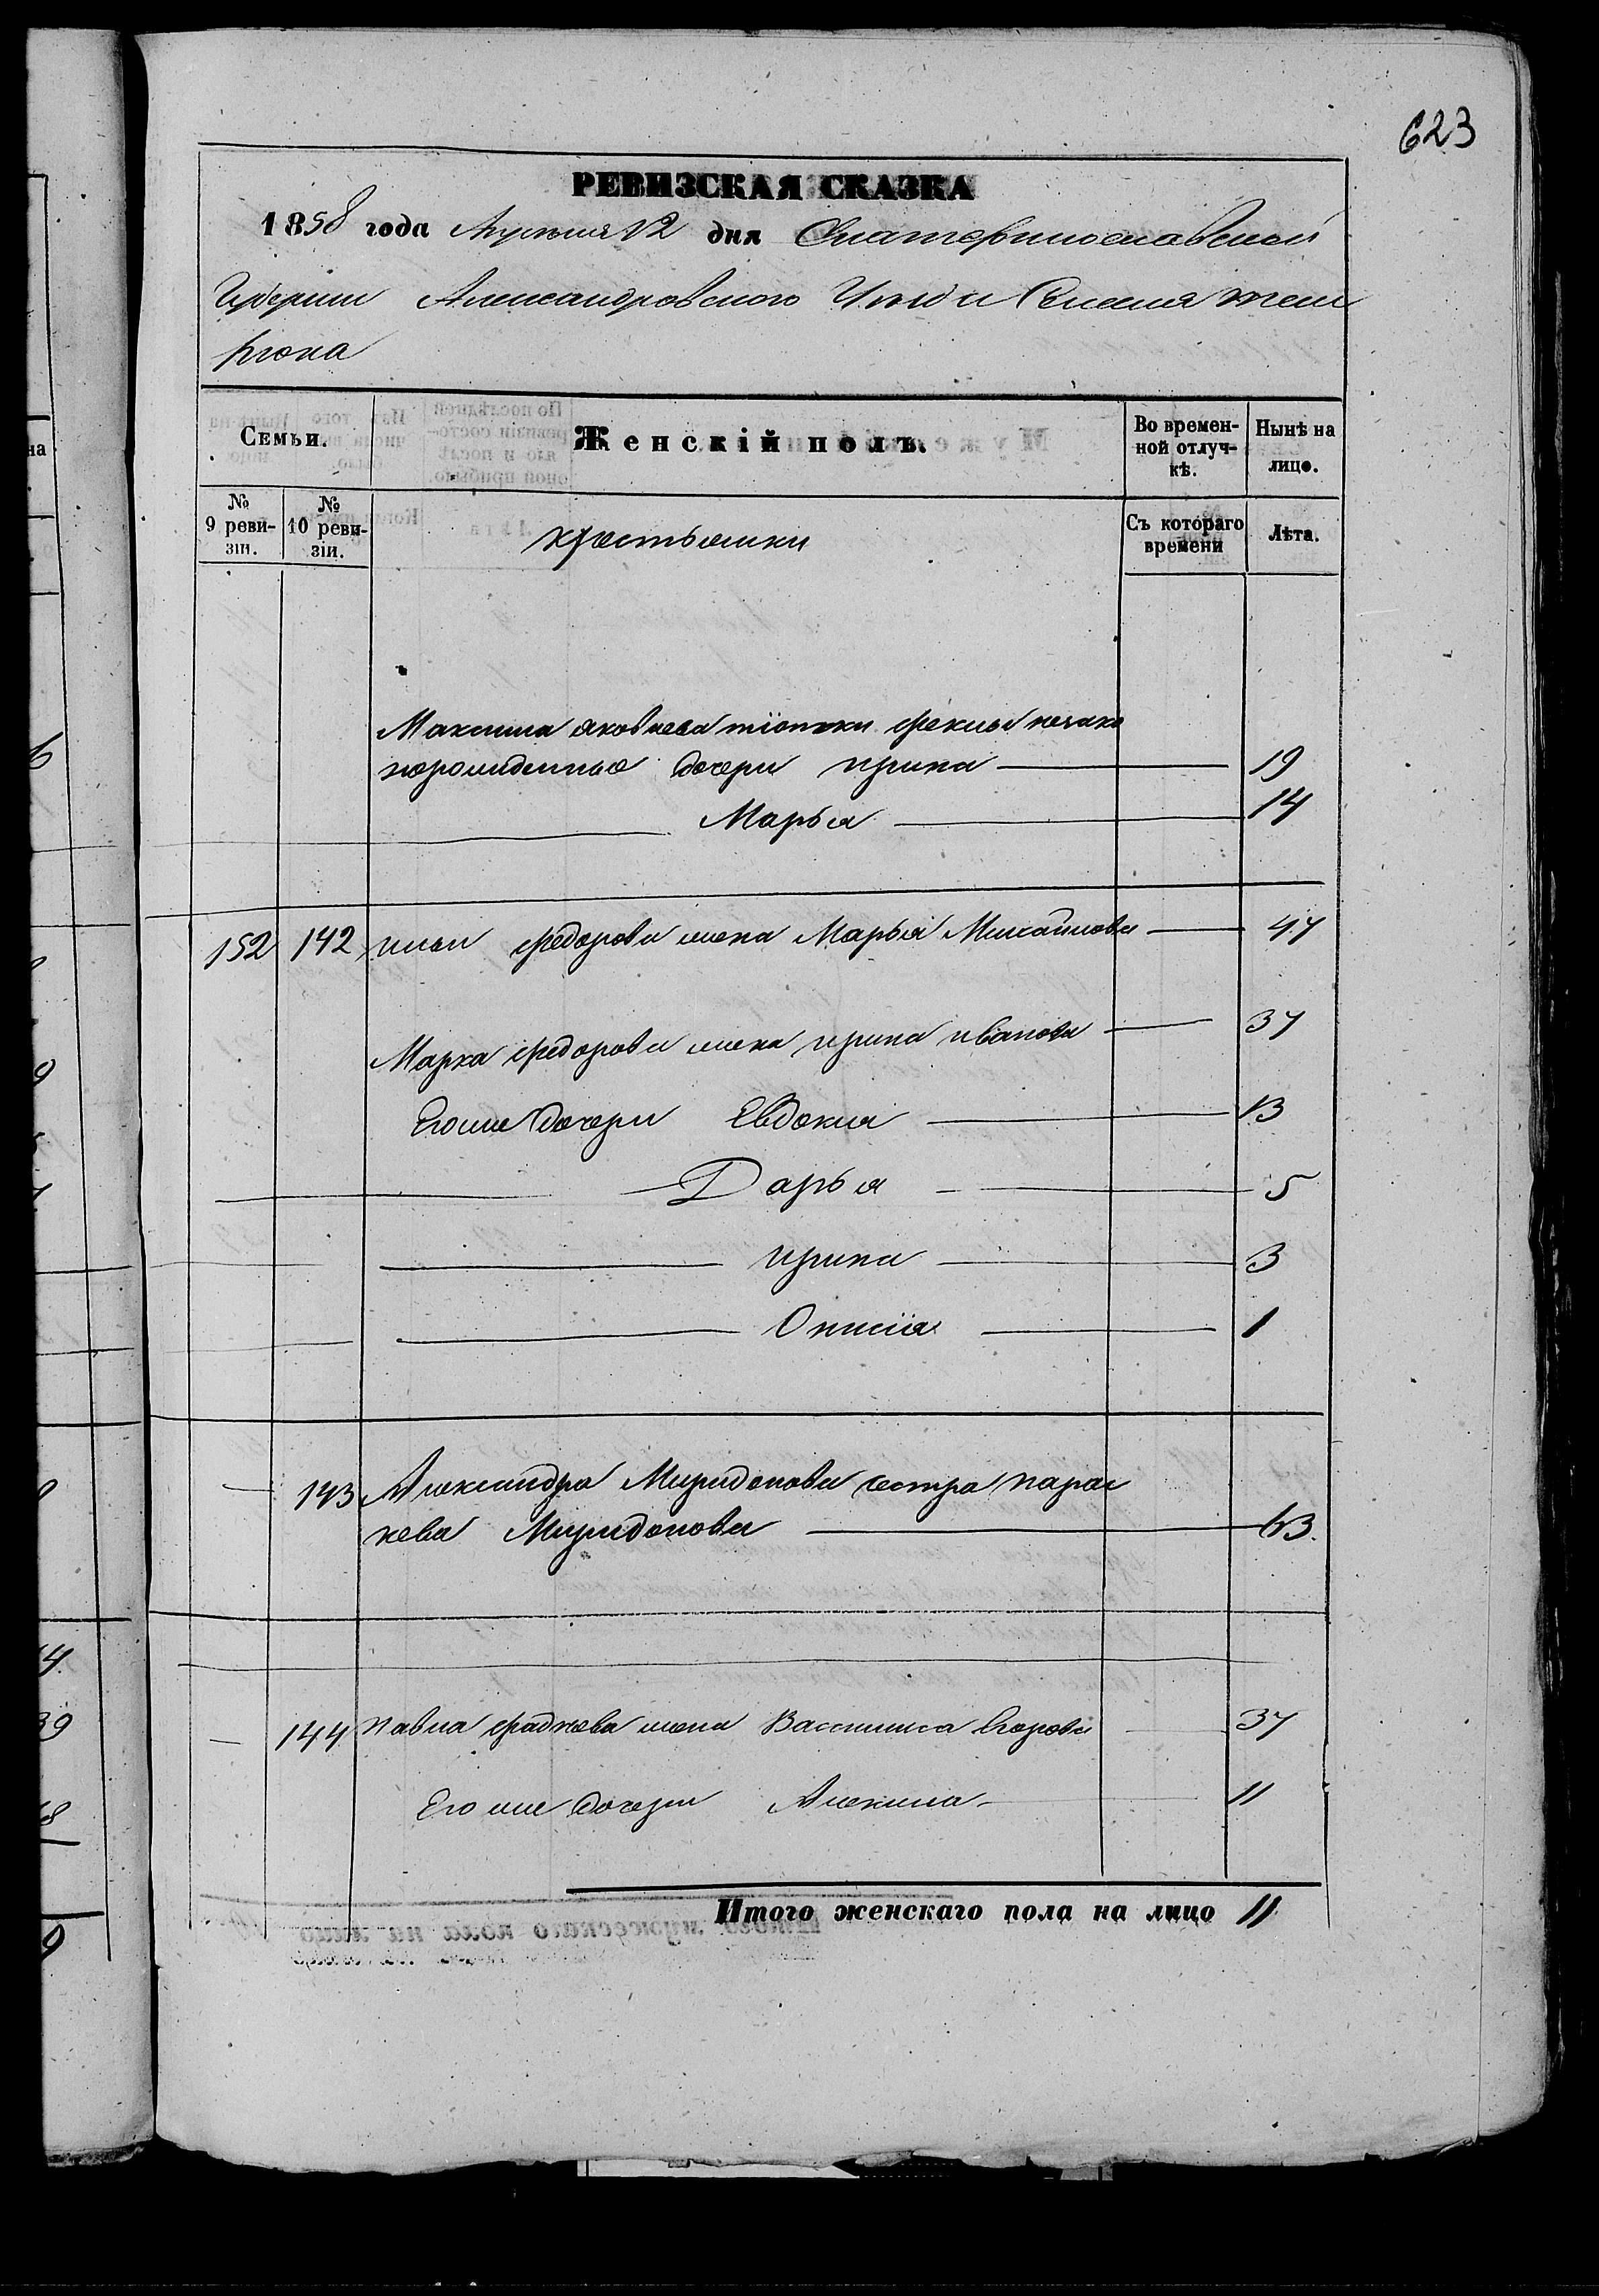 623
РЕВИЗСКАЯ СКАЗКА
1858 года Апреля 12 дня Екатеринославской
Губернии Александровского Уезда Селения желе
ртока
Семьи. Женскій полъ. Во времен-ной отлуч-кѣ. Нынѣ на лицо.
№ 9 реви-зіи. № 10 реви-зіи. крестьянки Съ котораго времени Лѣта.
Максима яковлева тіотки феклы незако
норожденные дочери ирина 19
Марья 14
152 142 ильи федорова жена Марья Михайлова 47
Марка федорова жена ирина иванова 37
Егоже дочери Евдокия 13
Дарья 5
ирина 3
Онисiя 1
143 Александра Миридонова сестра парас
кева Миридонова 63.
144 павла фадеева жена Василиса Егорова 37
Его же дочери Акилина 11
Итого женскаго пола на лицо 11